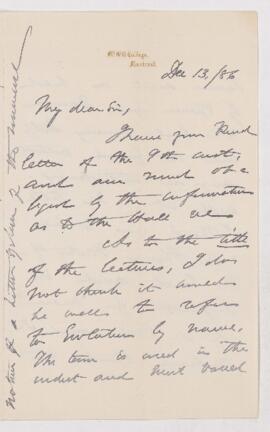 McGill College,
Montreal.
Dec 13./86
My dear Sir,
I have your kind
letter of the 9th inst.,
and am much ob-
liged by the information
as to the
As to the title
of the lectures, I do
not think it would
be well to refer
to Evolution by name.
The term is used in the
and most
notice of a better of the